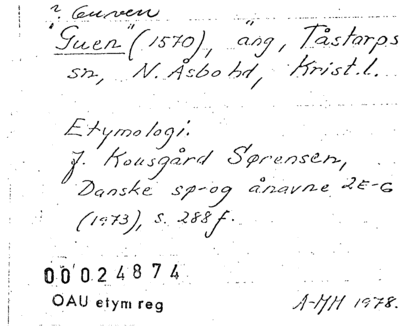 ? Gurven
"Guen" (1570), äng, Tåstarps
sn, N. Åsbo hd, Krist.l.
Etymologi.
J. Kousgård Sørensen,
Danske sø- og ånavne 2E-G
(1973), s. 288f.
00024874
OAU etym reg
A-MH 1978.